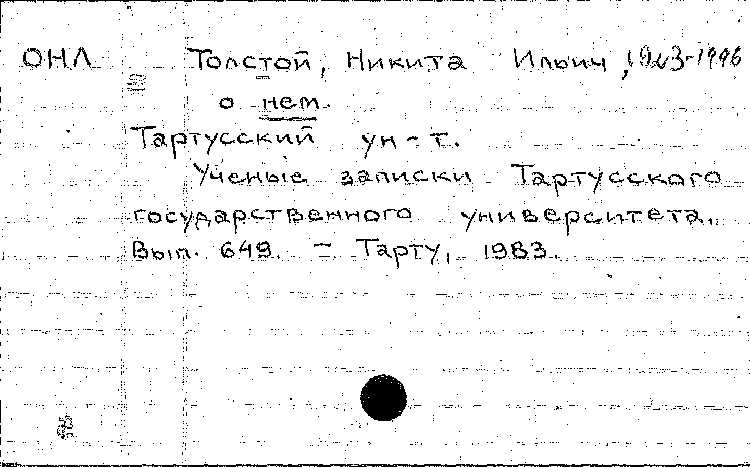 ОНЛ Толстой, Никита Ильич, 1923-1996
о нем.
Тартусский ун-т.
Ученые записки Тартусского
государственного университета.
Вып. 649. - Тарту, 1983.